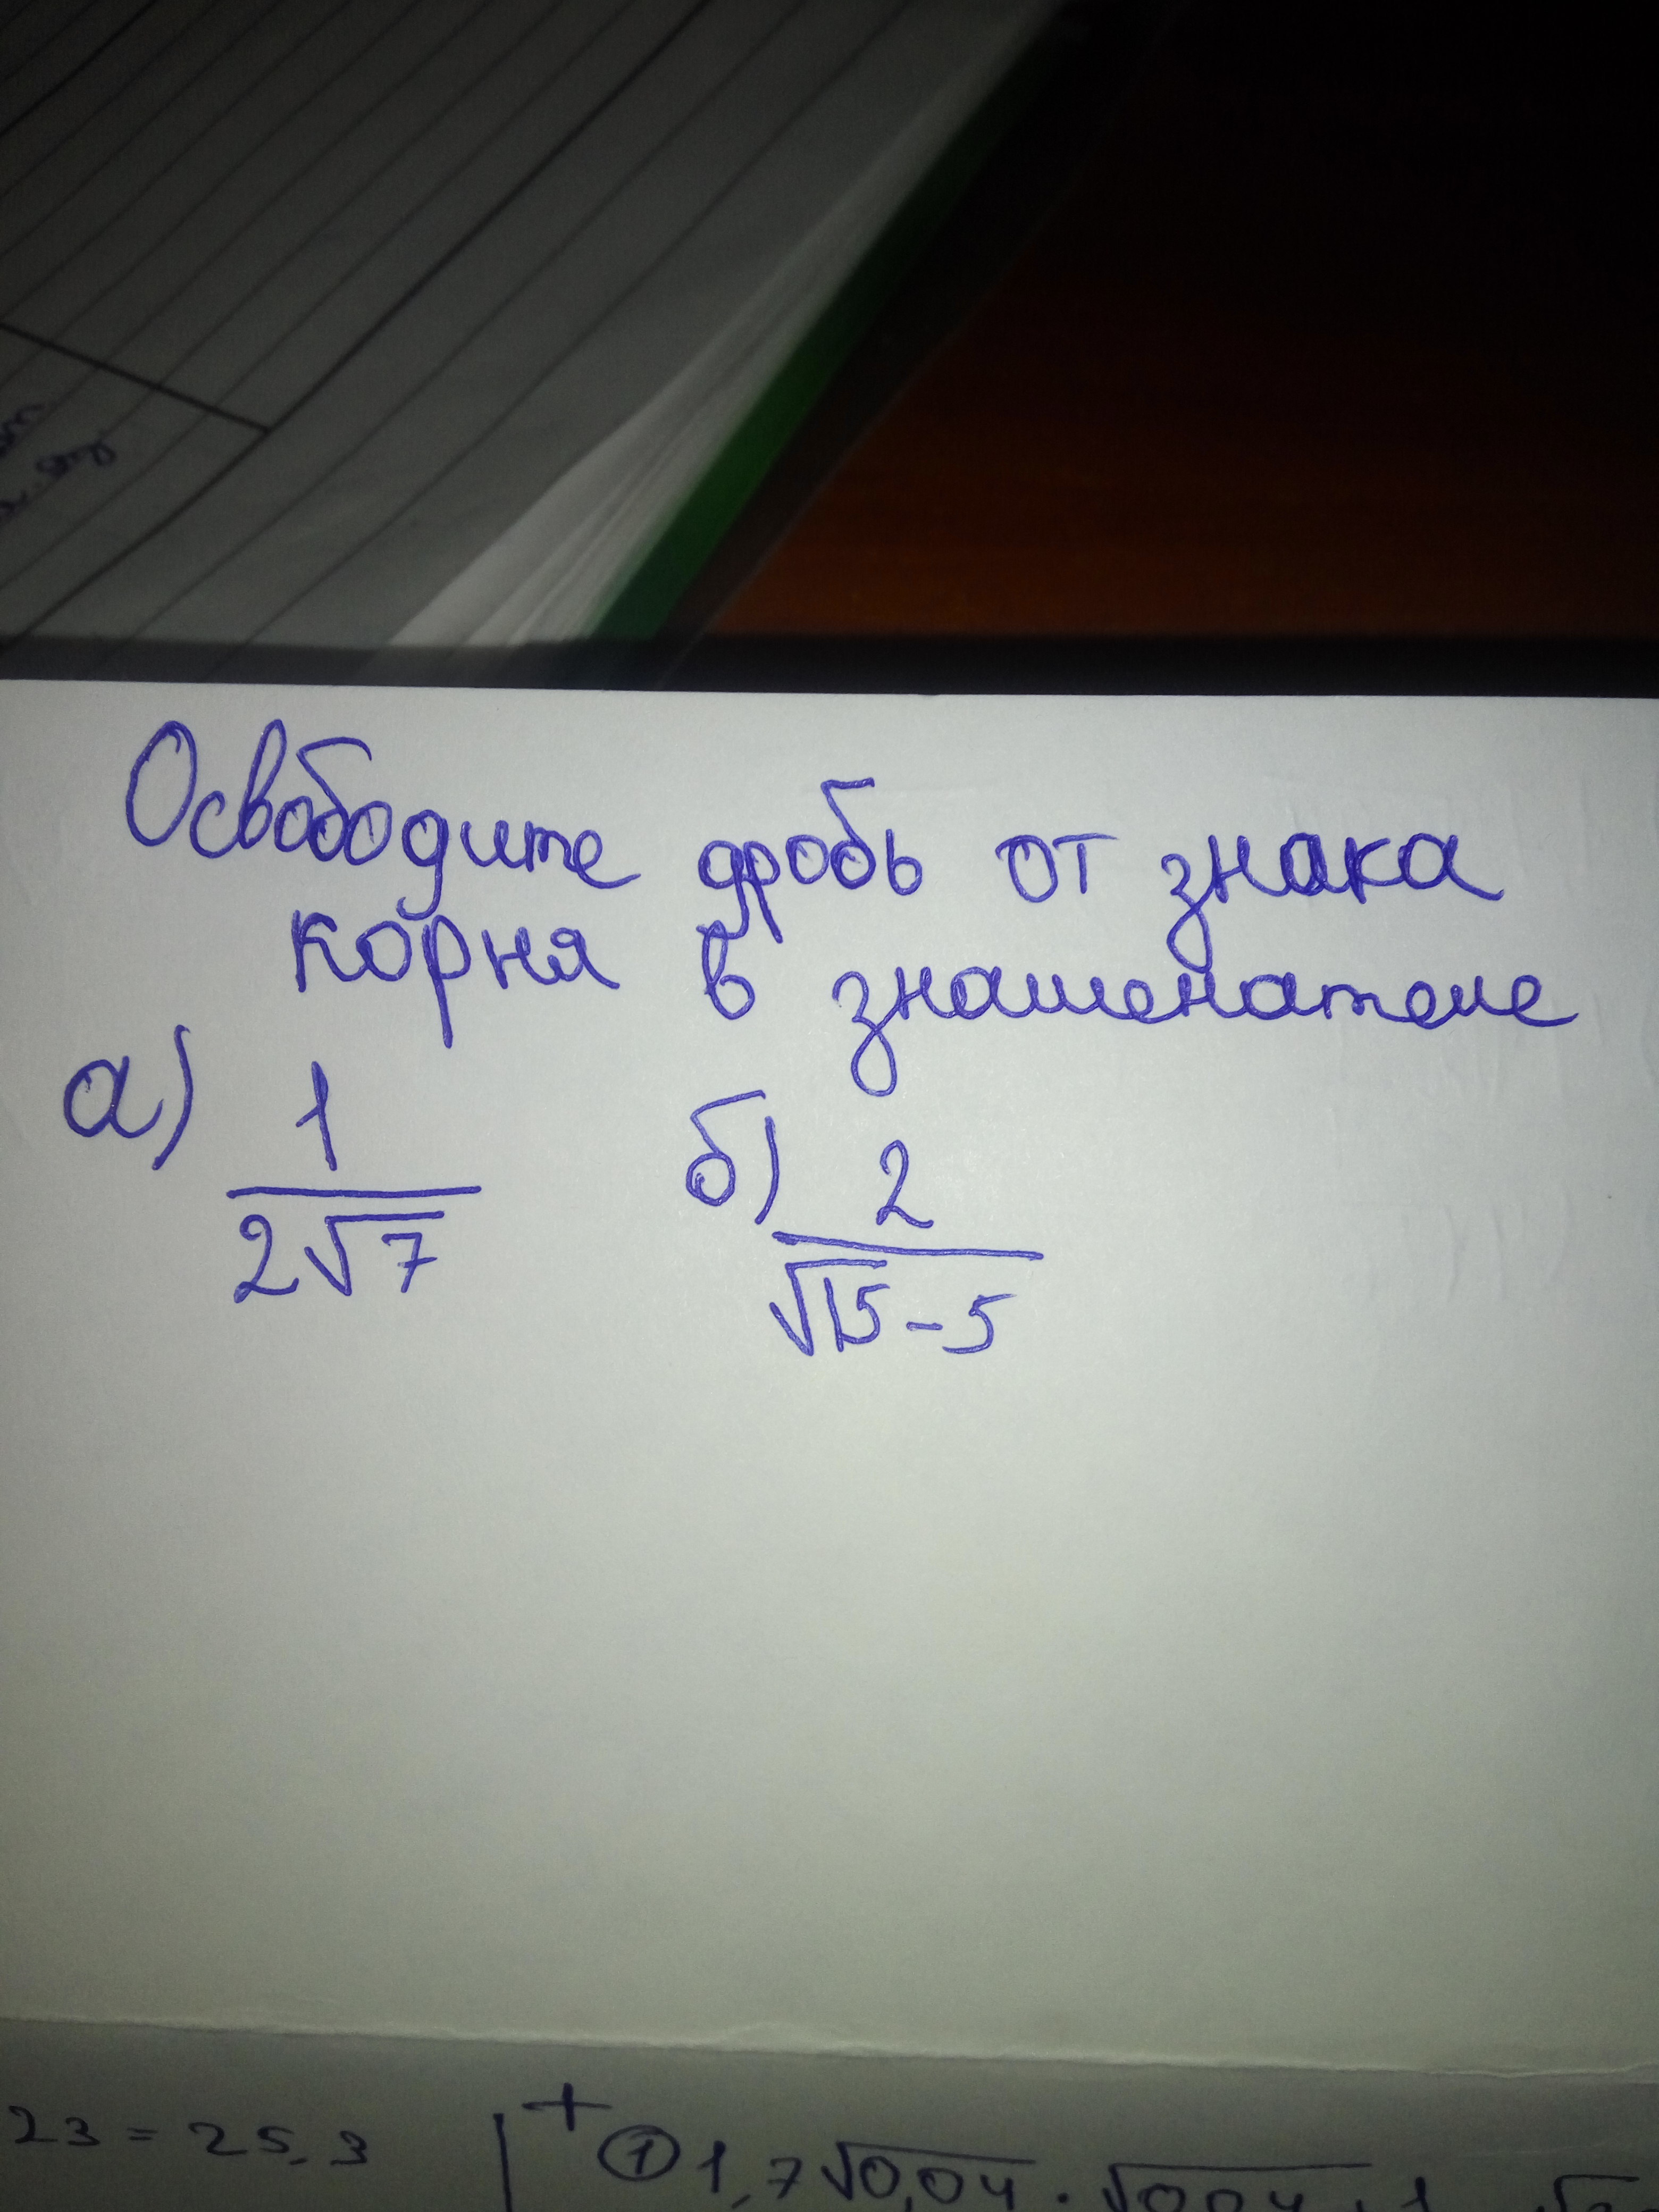 Освободите дробь от знака
корня в знаменателе
а) 1/(2√7) б) 2/(√15-5)
23 = 25,3 | + ① 1,7√0,04 · √0,04